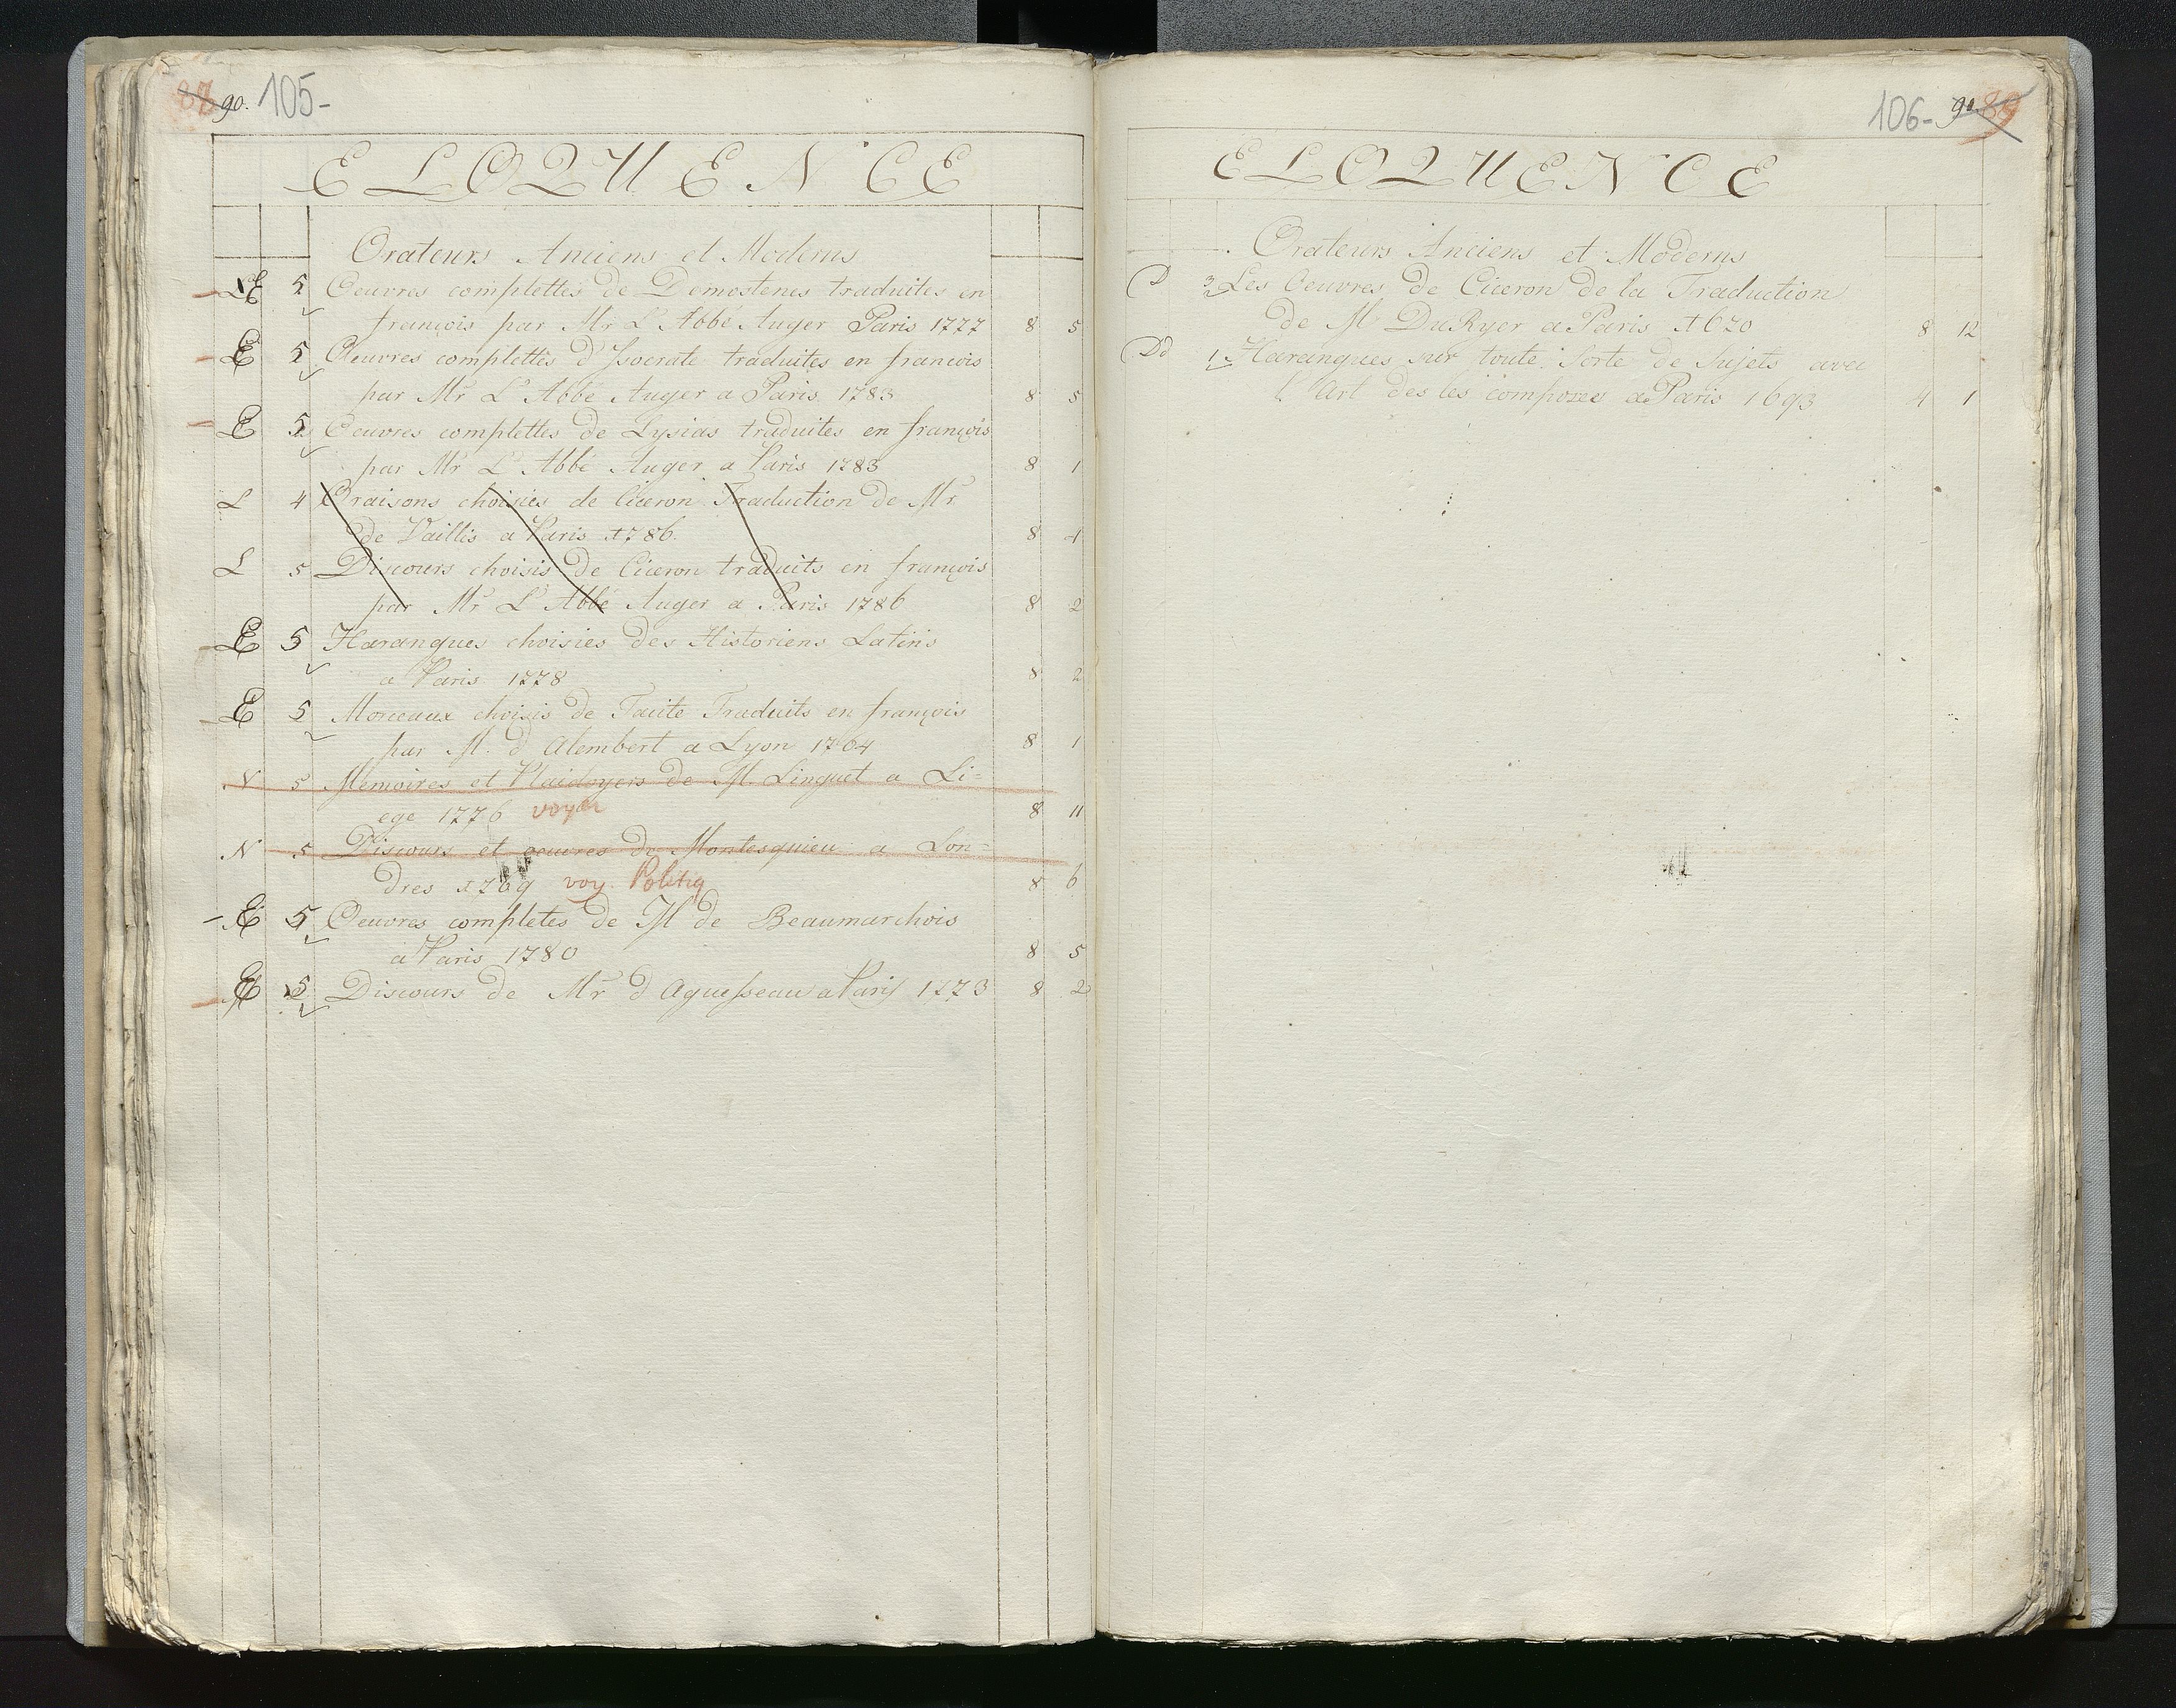 88 90. 105-
ELOQUENCE
Orateurs Anciens et Moderns
E 5 Oeuvres complettes de Demostenes traduites en
françois par Mr L'Abbé Auger Paris 1777 8 5
E 5 Oeuvres complettes d'Isocrate traduites en françois
par Mr L'Abbé Auger a Paris 1783 8 5
E 5 Oeuvres complettes de Lysias traduites en françois
par Mr L'Abbé Auger a Paris 1783 8 1
L 4 Oraisons choisies de Ciceron Traduction de Mr
de Vaillis a Paris 1786. 8 4
L 5 Discours choisis de Ciceron traduits en françois
par Mr L'Abbé Auger a Paris 1786 8 2
E 5 Harangues choisies des Historiens Latins
a Paris 1778 8 2
E 5 Morceaux choisis de Tacite Traduits en françois
par M. d'Alembert a Lyon 1764 8 1
N 5 Memoires et Plaidoyers de M. Linguet a Li=
ege 1776 voyez 8 11
N 5 Discours et oeuvres de Montesquieu a Lon=
dres 1769 voy. Politiq 8 6
E 5 Oeuvres completes de M de Beaumarchois
a Paris 1780 8 5
E 5 Discours de Mr d'Aguesseau a Paris 1773 8 2
106- 91 89
ELOQUENCE
Orateurs Anciens et Moderns
P 3 Les Oeuvres de Ciceron de la Traduction
de Mr DuRyer a Paris 1670 8 12
Dd 1 Harangues sur toute Sorte de Sujets avec
l'Art des les composer a Paris 1693 4 1